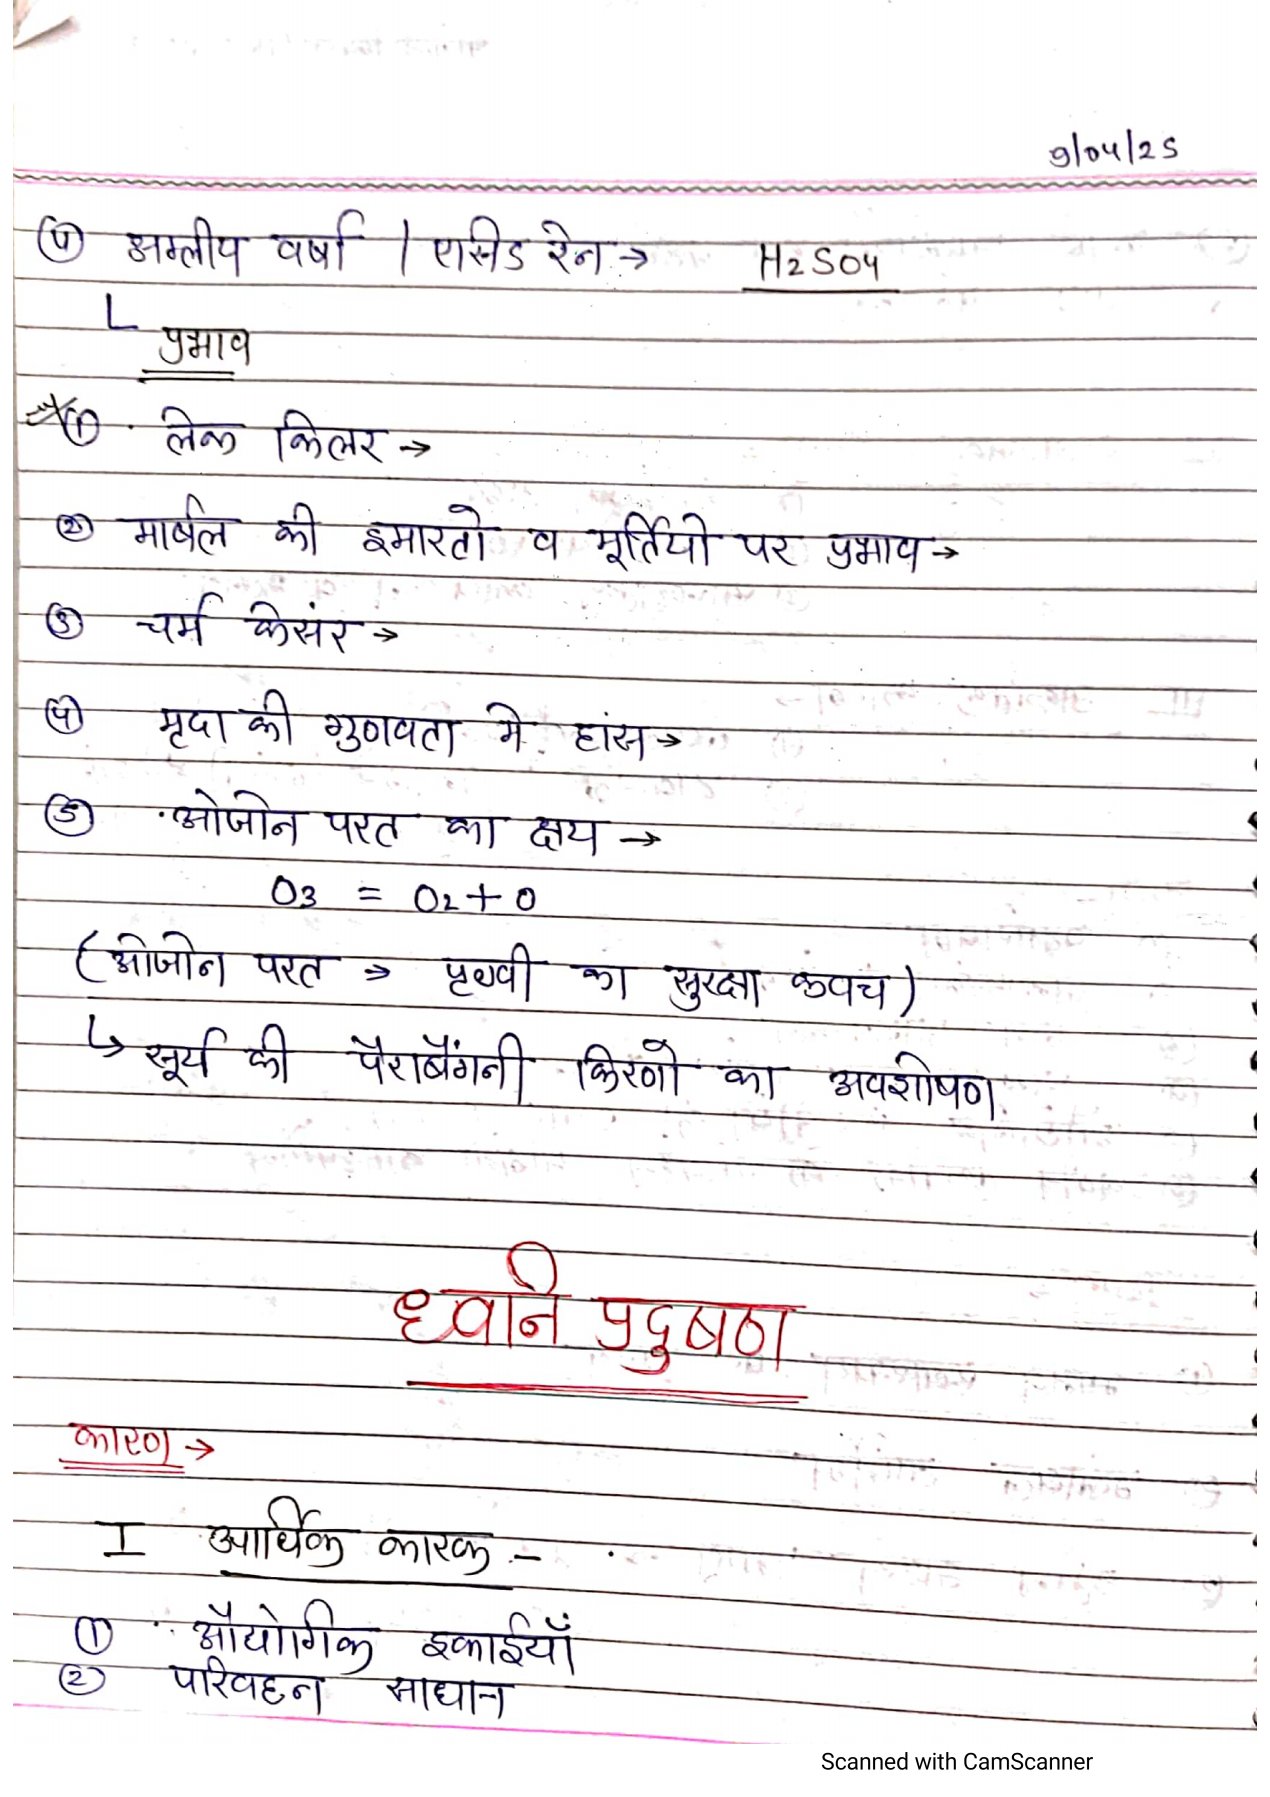 9/04/25
④ अम्लीय वर्षा / एसिड रेन → H2SO4
प्रभाव
① लेक किलर →
② मार्बल की इमारतो व मूर्तियो पर प्रभाव →
③ चर्म केसंर →
④ मृदा की गुणवता मे हांस →
⑤ ओजोन परत का क्षय →
O3 = O2 + O
(ओजोन परत → पृथ्वी का सुरक्षा कवच)
↳ सूर्य की पैराबैंगनी किरणो का अवशोषण
ध्वनि प्रदुषण
कारण →
I आर्थिक कारक -
① औद्योगिक इकाईयाँ
② परिवहन साधान
Scanned with CamScanner